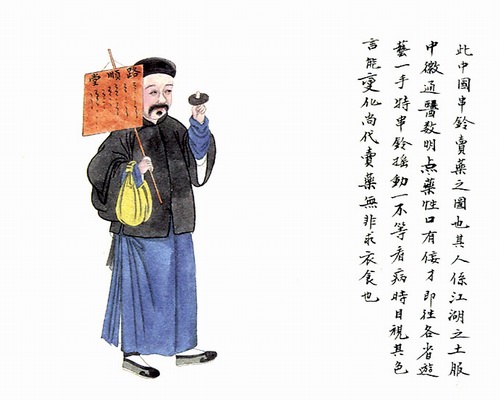 路順堂
此中國串鈴賣藥之圖也其人係江湖之士服
中微通醫教明点藥性口有佞才即往各省遊
藝一手持串鈴搖動一不等看病時目視其色
言能變化尚代賣藥無非求衣食也